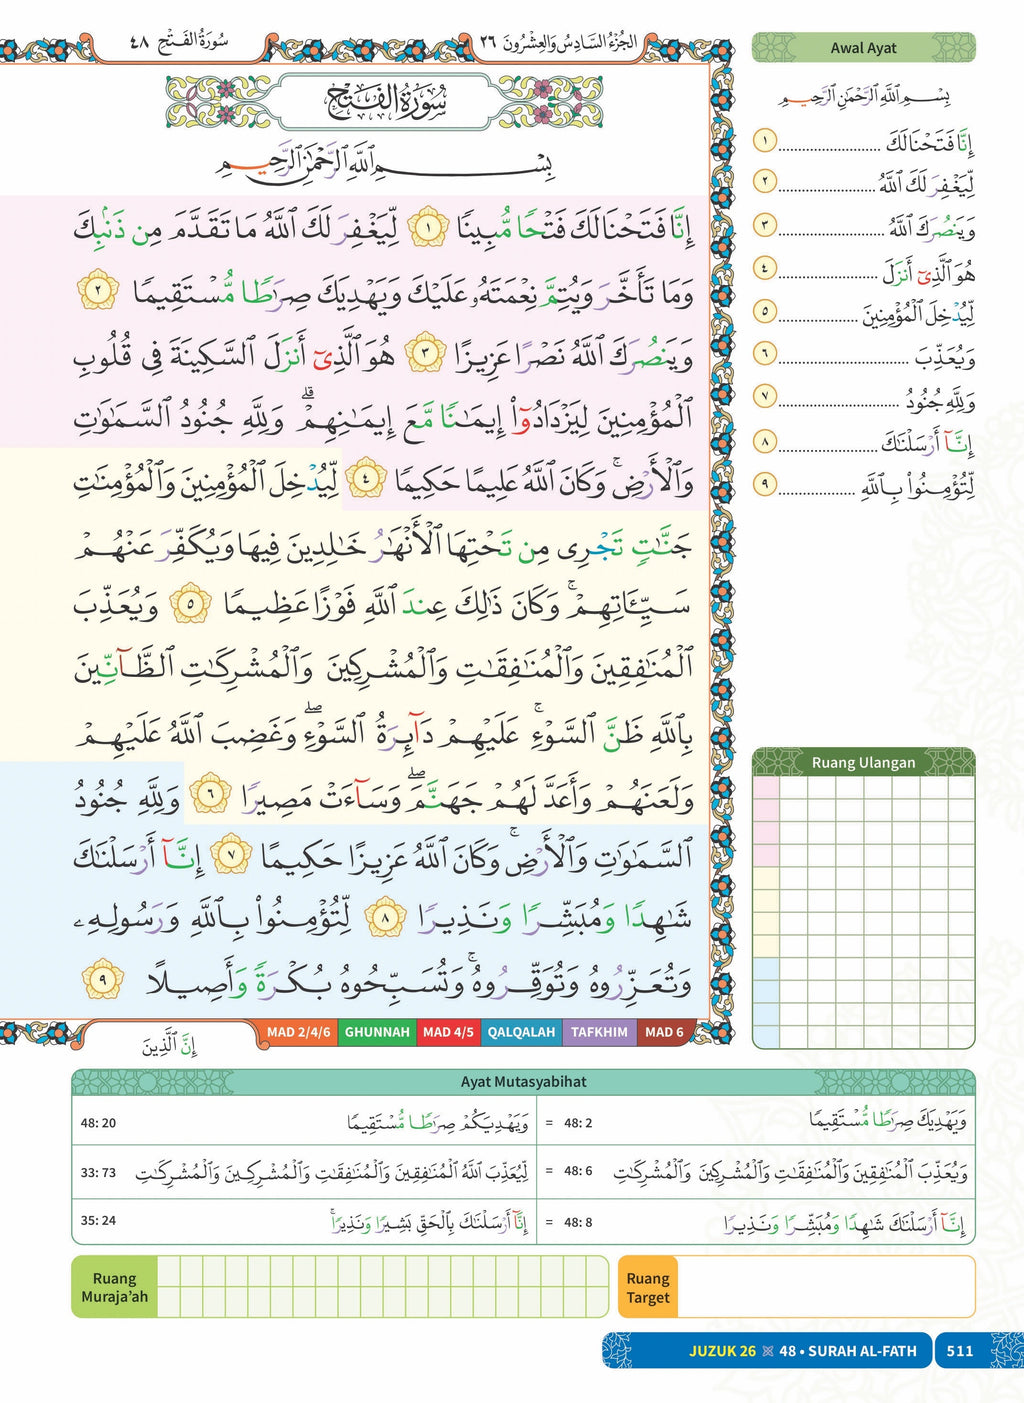 سُورَةُ الفَتْحِ ٤٨
الجُزْءُ السَّادِسُ وَالعِشْرُونَ ٢٦
سُورَةُ الفَتْحِ
بِسْمِ ٱللَّهِ ٱلرَّحْمَٰنِ ٱلرَّحِيمِ
إِنَّا فَتَحْنَا لَكَ فَتْحًا مُّبِينًا ١ لِّيَغْفِرَ لَكَ ٱللَّهُ مَا تَقَدَّمَ مِن ذَنۢبِكَ
وَمَا تَأَخَّرَ وَيُتِمَّ نِعْمَتَهُۥ عَلَيْكَ وَيَهْدِيَكَ صِرَٰطًا مُّسْتَقِيمًا ٢
وَيَنصُرَكَ ٱللَّهُ نَصْرًا عَزِيزًا ٣ هُوَ ٱلَّذِىٓ أَنزَلَ ٱلسَّكِينَةَ فِى قُلُوبِ
ٱلْمُؤْمِنِينَ لِيَزْدَادُوٓا۟ إِيمَٰنًا مَّعَ إِيمَٰنِهِمْ ۗ وَلِلَّهِ جُنُودُ ٱلسَّمَٰوَٰتِ
وَٱلْأَرْضِ ۚ وَكَانَ ٱللَّهُ عَلِيمًا حَكِيمًا ٤ لِّيُدْخِلَ ٱلْمُؤْمِنِينَ وَٱلْمُؤْمِنَٰتِ
جَنَّٰتٍ تَجْرِى مِن تَحْتِهَا ٱلْأَنْهَٰرُ خَٰلِدِينَ فِيهَا وَيُكَفِّرَ عَنْهُمْ
سَيِّـَٔاتِهِمْ ۚ وَكَانَ ذَٰلِكَ عِندَ ٱللَّهِ فَوْزًا عَظِيمًا ٥ وَيُعَذِّبَ
ٱلْمُنَٰفِقِينَ وَٱلْمُنَٰفِقَٰتِ وَٱلْمُشْرِكِينَ وَٱلْمُشْرِكَٰتِ ٱلظَّآنِّينَ
بِٱللَّهِ ظَنَّ ٱلسَّوْءِ ۚ عَلَيْهِمْ دَآئِرَةُ ٱلسَّوْءِ ۖ وَغَضِبَ ٱللَّهُ عَلَيْهِمْ
وَلَعَنَهُمْ وَأَعَدَّ لَهُمْ جَهَنَّمَ ۖ وَسَآءَتْ مَصِيرًا ٦ وَلِلَّهِ جُنُودُ
ٱلسَّمَٰوَٰتِ وَٱلْأَرْضِ ۚ وَكَانَ ٱللَّهُ عَزِيزًا حَكِيمًا ٧ إِنَّآ أَرْسَلْنَٰكَ
شَٰهِدًا وَمُبَشِّرًا وَنَذِيرًا ٨ لِّتُؤْمِنُوا۟ بِٱللَّهِ وَرَسُولِهِۦ
وَتُعَزِّرُوهُ وَتُوَقِّرُوهُ ۚ وَتُسَبِّحُوهُ بُكْرَةً وَأَصِيلًا ٩
MAD 2/4/6 GHUNNAH MAD 4/5 QALQALAH TAFKHIM MAD 6
إِنَّ ٱلَّذِينَ
Awal Ayat
بِسْمِ ٱللَّهِ ٱلرَّحْمَٰنِ ٱلرَّحِيمِ
إِنَّا فَتَحْنَا لَكَ .......................... ١
لِّيَغْفِرَ لَكَ ٱللَّهُ ........................ ٢
وَيَنصُرَكَ ٱللَّهُ ........................... ٣
هُوَ ٱلَّذِىٓ أَنزَلَ ......................... ٤
لِّيُدْخِلَ ٱلْمُؤْمِنِينَ .................... ٥
وَيُعَذِّبَ ................................. ٦
وَلِلَّهِ جُنُودُ ............................... ٧
إِنَّآ أَرْسَلْنَٰكَ ......................... ٨
لِّتُؤْمِنُوا۟ بِٱللَّهِ ................... ٩
Ruang Ulangan
Ayat Mutasyabihat
وَيَهْدِيَكَ صِرَٰطًا مُّسْتَقِيمًا 48: 2 = وَيَهْدِيَكُمْ صِرَٰطًا مُّسْتَقِيمًا 48: 20
وَيُعَذِّبَ ٱلْمُنَٰفِقِينَ وَٱلْمُنَٰفِقَٰتِ وَٱلْمُشْرِكِينَ وَٱلْمُشْرِكَٰتِ 48: 6 = لِّيُعَذِّبَ ٱللَّهُ ٱلْمُنَٰفِقِينَ وَٱلْمُنَٰفِقَٰتِ وَٱلْمُشْرِكِينَ وَٱلْمُشْرِكَٰتِ 33: 73
إِنَّآ أَرْسَلْنَٰكَ شَٰهِدًا وَمُبَشِّرًا وَنَذِيرًا 48: 8 = إِنَّآ أَرْسَلْنَٰكَ بِٱلْحَقِّ بَشِيرًا وَنَذِيرًا ۚ 35: 24
Ruang
Muraja’ah
Ruang
Target
JUZUK 26 48 • SURAH AL-FATH 511